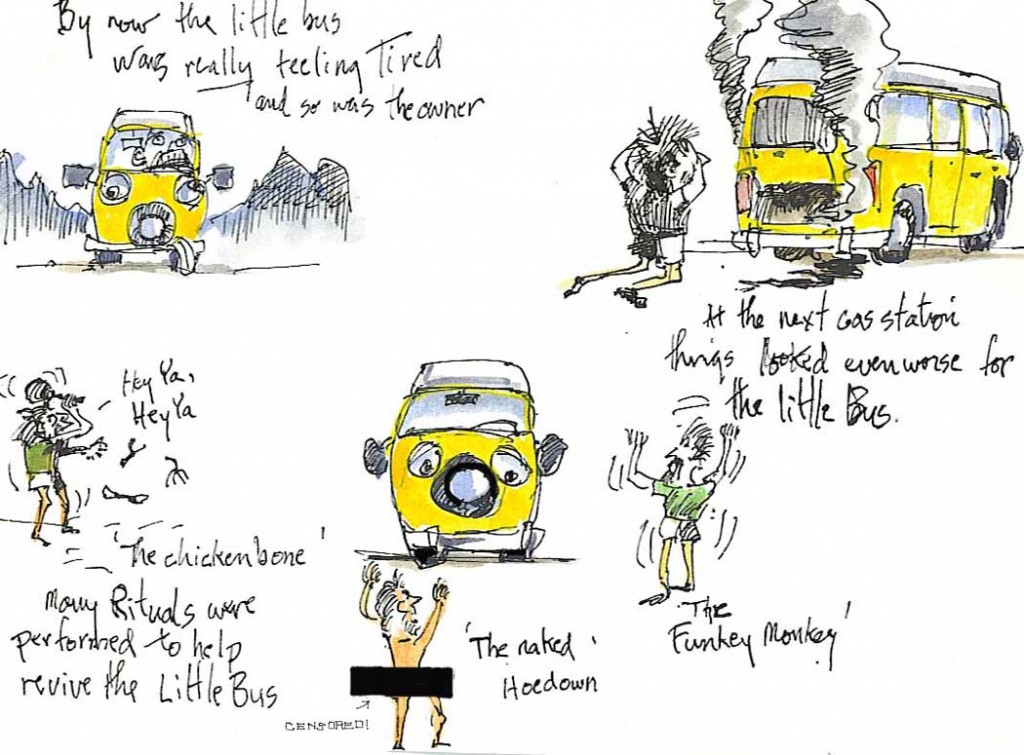 By now the little bus
was really feeling Tired
and so was the owner
At the next gas station
things looked even worse for
the little Bus.
Hey Ya,
Hey Ya
'The chicken bone'
Many Rituals were
performed to help
revive the Little Bus
'The naked'
Hoedown
CENSORED!
'The
Funkey Monkey'